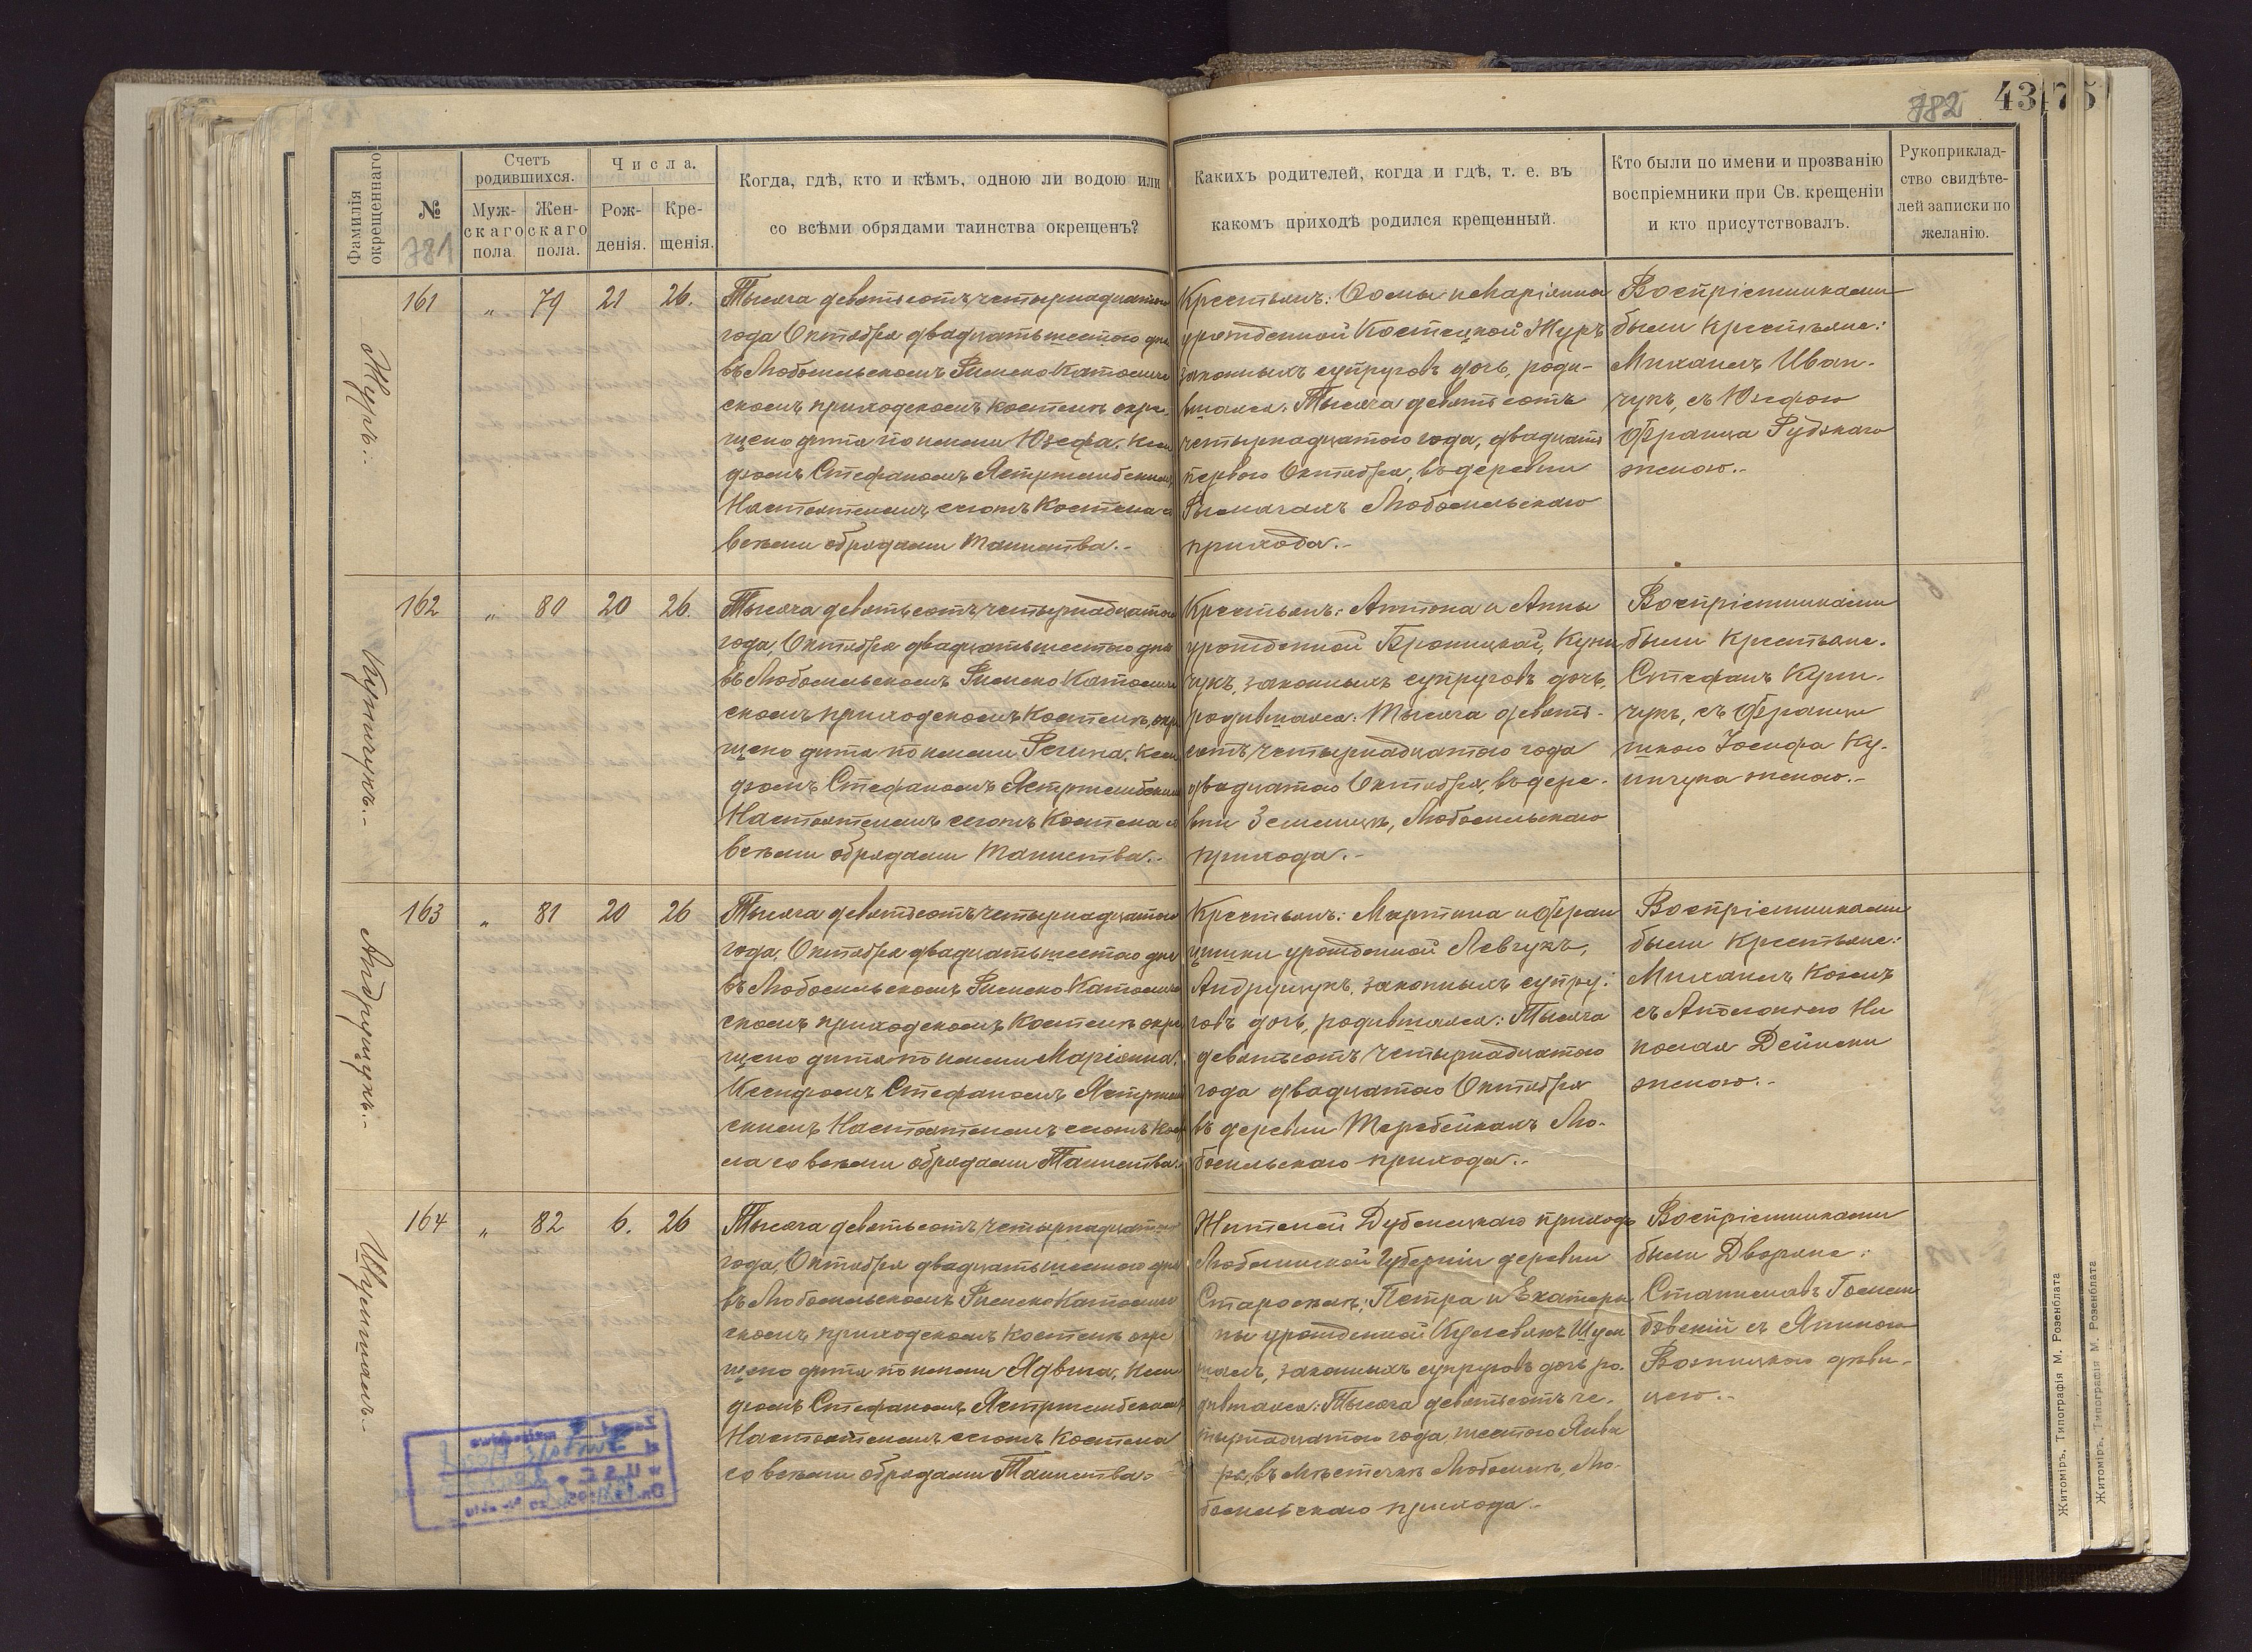 782
43
75
Фамилія окрещеннаго
№
781
Счетъ родившихся.
Мужскаго пола.
Женскаго пола.
Числа.
Рожденія.
Крещенія.
Когда, гдѣ, кто и кѣмъ, одною ли водою или
со всѣми обрядами таинства окрещенъ?
Какихъ родителей, когда и гдѣ, т. е. въ
какомъ приходѣ родился крещенный.
Кто были по имени и прозванію
воспріемники при Св. крещеніи
и кто присутствовалъ.
Рукоприклад-
ство свидѣте-
лей записки по
желанію.
Журъ.-
161 „ 79 21 26.
Тысяча девятьсотъ четырнадцатого
года Октября двадцать шестого дня
въ Любомльскомъ Римско Католиче
скомъ приходскомъ костелѣ окре-
щено дитя по имени Юзефа. Ксен
дзомъ Стефаномъ Ястржембскимъ
Настоятелемъ сегожъ Костела со
всѣми обрядами Таинства.-
Крестьянъ: Ѳомы и Маріянны
урожденной Костецкой Журъ
законныхъ супруговъ дочь, роди-
вшаяся: Тысяча девятьсотъ
четырнадцатого года, двадцать
первого Октября, въ деревни
Рымачахъ Любомльскаго
прихода.-
Воспріемниками
были Крестьяне:
Михаилъ Иван-
чукъ, съ Юзефою
Франца Рудзкаго
женою.-
Куничукъ.-
162 „ 80 20 26.
Тысяча девятьсотъ четырнадцатого
года, Октября двадцать шестого дня
въ Любомльскомъ Римско Католиче
скомъ приходскомъ Костелѣ, окре
щено дитя по имени Регина. Ксен
дзомъ Стефаномъ Ястржембскимъ
Настоятелемъ сегожъ Костела со
всѣми обрядами Таинства.-
Крестьянъ: Антона и Анны
урожденной Броницкой, Куни
чукъ, законныхъ супруговъ дочь,
родившаяся: Тысяча девять-
сотъ четырнадцатого года
двадцатого Октября, въ дере-
вни Землицѣ, Любомльскаго
прихода.-
Воспріемниками
были Крестьяне.
Стефанъ Куни-
чукъ, съ Францы
шкою Іосифа Ку-
ничука женою.-
Андрущукъ.-
163 „ 81 20 26
Тысяча девятьсотъ четырнадцатого
года, Октября двадцать шестого дня
въ Любомльскомъ Римско Католиче
скомъ приходскомъ Костелѣ окре
щено дитя по имени Маріянна.
Ксендзомъ Стефаномъ Ястржемб
скимъ Настоятелемъ сегожъ Косте
ла со всѣми обрядами Таинства.-
Крестьянъ: Мартина и Фран
цишки урожденной Левчукъ,
Андрущукъ, законныхъ супру-
говъ дочь, родившаяся: Тысяча
девятьсотъ четырнадцатого
года двадцатого Октября
въ деревни Теребейкахъ Лю-
бомльскаго прихода.-
Воспріемниками
были Крестьяне:
Михаилъ Козелъ
съ Антониною Ни
колая Дейнеки
женою.-
164 „ 82 6. 26
Тысяча девятьсотъ четырнадцатого
года, Октября двадцать шестого дня
въ Любомльскомъ Римско Католиче
скомъ приходскомъ Костелѣ окре
щено дитя по имени Ядвига, Ксен
дзомъ Стефаномъ Ястржембскимъ
Настоятелемъ сегожъ Костела
со всѣми обрядами Таинства.-
Жителей Дубенецкаго прихода
Люблинской Губерніи деревни
Петра и Екатери
ны урожденной
законныхъ супруговъ дочь ро-
дившаяся: Тысяча девятьсотъ че-
тырнадцатого года, шестого Янва
ря, въ мѣстечкѣ Любомлѣ, Лю-
бомльскаго прихода.-
Воспріемниками
были Дворяне:
Станиславъ
съ Яниною
дѣви-
цею.-
Житоміръ, Типографія М. Розенблата
Житоміръ, Типографія М. Розенблата